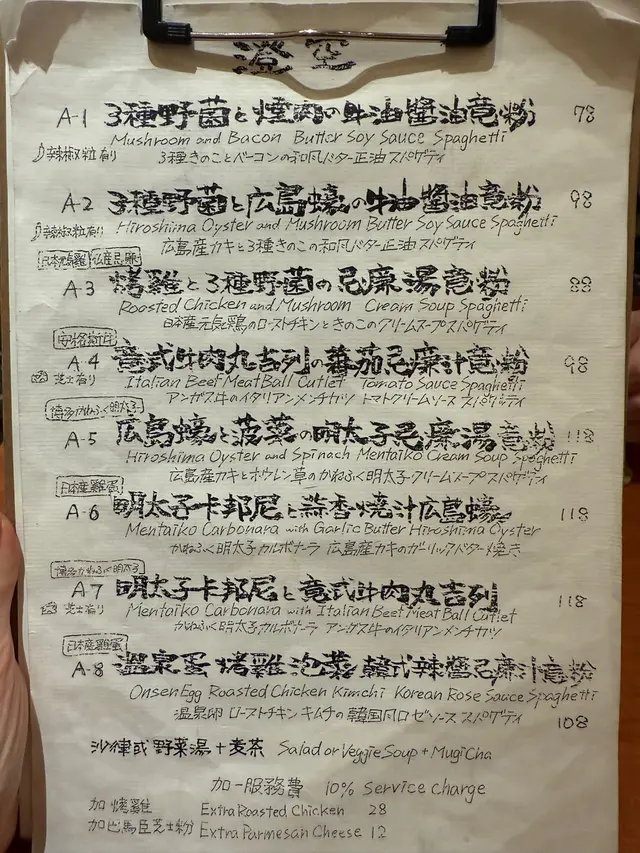 澄空
A-1 3種野菌と焼肉の牛油醬油意粉 78
Mushroom and Bacon Butter Soy Sauce Spaghetti
辣椒粒有り 3種きのことベーコンの和風バター正油スパゲティ
A-2 3種野菌と広島蠔の牛油醬油意粉 98
Hiroshima Oyster and Mushroom Butter Soy Sauce Spaghetti
辣椒粒有り 広島産カキと3種きのこの和風バター正油スパゲティ
A-3 烤雞と3種野菌の忌廉湯意粉 88
Roasted Chicken and Mushroom Cream Soup Spaghetti
日本産元気鶏のローストチキンときのこのクリームスープスパゲティ
安格斯牛
A-4 意式牛肉丸吉列の蕃茄忌廉汁意粉 98
Italian Beef MeatBall Cutlet Tomato Sauce Spaghetti
芝士有り アンガス牛のイタリアンメンチカツ トマトクリームソース スパゲティ
博多かねふく明太子
A-5 広島蠔と菠菜の明太子忌廉湯意粉 118
Hiroshima Oyster and Spinach Mentaiko Cream Soup Spaghetti
広島産カキとホウレン草のかねふく明太子クリームスープスパゲティ
日本産雞蛋
A-6 明太子卡邦尼と蒜香燒汁広島蠔 118
Mentaiko Carbonara with Garlic Butter Hiroshima Oyster
かねふく明太子カルボナーラ 広島産カキのガーリックバター焼き
博多かねふく明太子
A-7 明太子卡邦尼と意式牛肉丸吉列 118
Mentaiko Carbonara with Italian Beef Meat Ball Cutlet
芝士有り かねふく明太子カルボナーラ アンガス牛のイタリアンメンチカツ
日本産雞蛋
A-8 溫泉蛋 烤雞泡菜 韓式辣醬忌廉汁意粉
Onsen Egg Roasted Chicken Kimchi Korean Rose Sauce Spaghetti
温泉卵 ローストチキン キムチの韓国風ロゼソース スパゲティ 108
沙律或野菜湯+麦茶 Salad or Veggie Soup + MugiCha
加一服務費 10% Service charge
加 烤雞 Extra Roasted Chicken 28
加巴馬臣芝士粉 Extra Parmesan Cheese 12